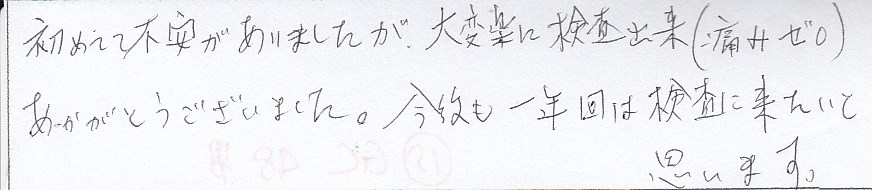 初めてで不安がありましたが、大変楽に検査出来(痛みゼロ)
ありがとうございました。今後も一年一回は検査に来たいと
思います。